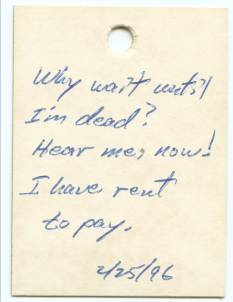 Why wait until
I'm dead?
Hear me, now!
I have rent
to pay.
2/25/96